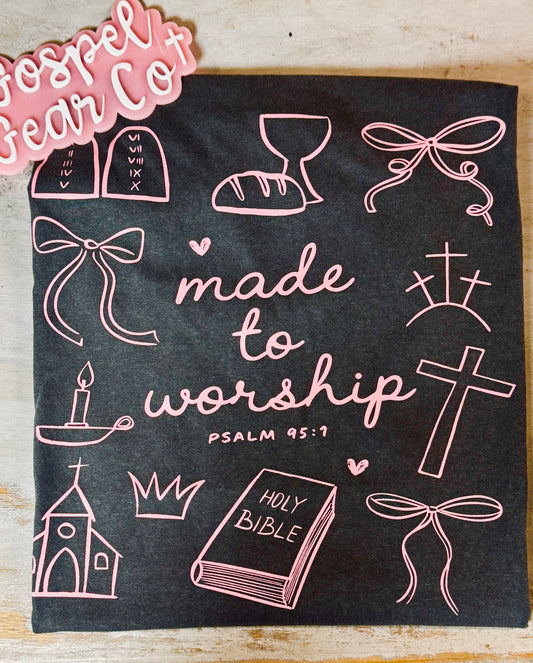 Gospel
Gear Co
IV
V
VI
VII
VIII
IX
X
made
to
worship
PSALM 95:1
HOLY
BIBLE